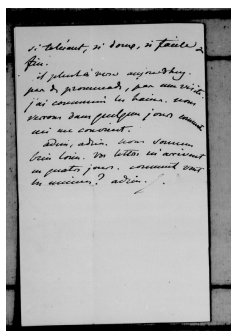 si tolérant, si doux, si facile à
fin.
il pleut à verse aujourd'huy.
pas de promenade, pas une visite.
j'ai commencé les bains. nous
verrons dans quelques jours comment
ils me convient.
adieu, adieu. nous sommes
bien loin. vos lettres m'arrivent
en quatre jours. comment vont
les miennes? adieu.